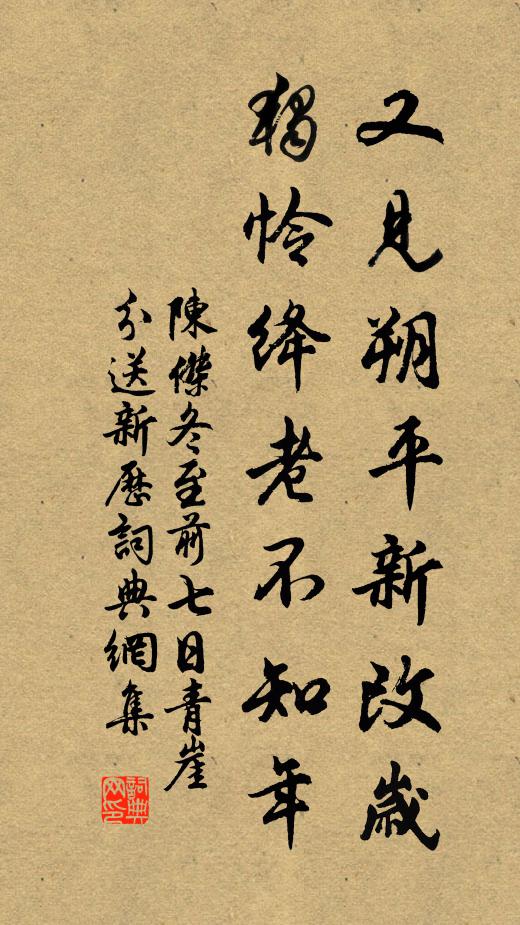 又見朔平新改歲
獨怜絳老不知年
陳傑冬至前七日青崖
分送新歷詞典網集
詞典网印